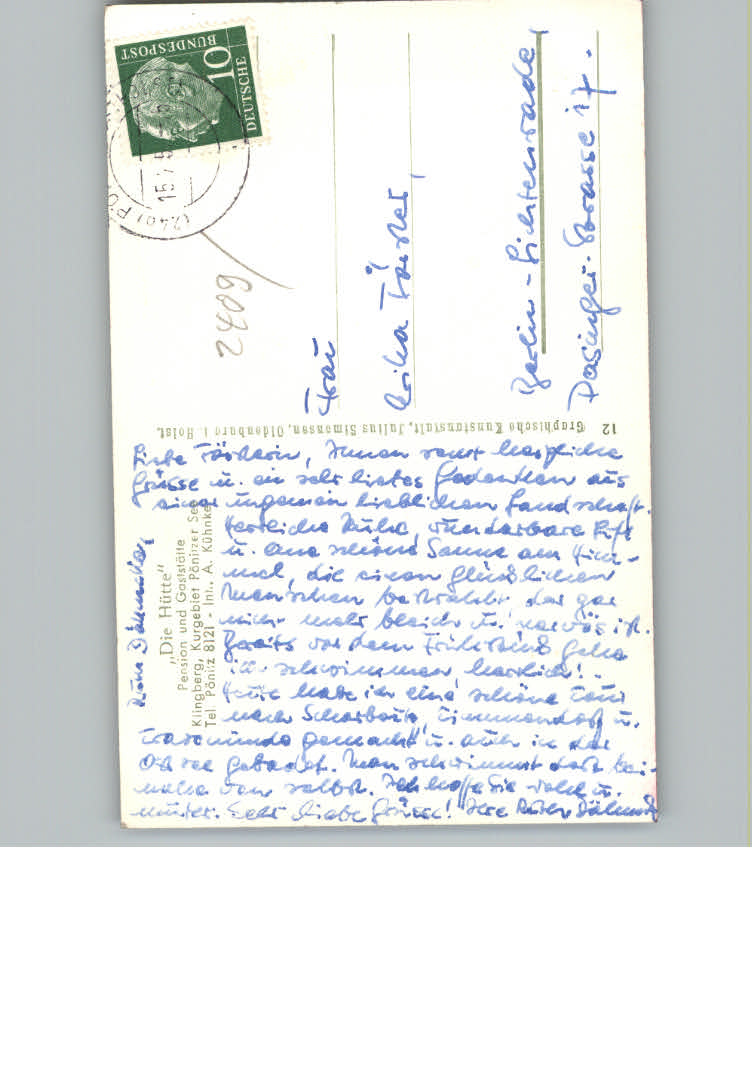 DEUTSCHE
BUNDESPOST
10
2409
Frau
Erika Förster,
Berlin-Lichtenrade,
Pasinger-Strasse 17.
12 Graphische Kunstanstalt, Julius Simonsen, Oldenburg i. Holst.
„Die Hütte"
Pension und Gaststätte
Klingberg, Kurgebiet Pönitzer See
Tel. Pönitz 8121 - Inh. A. Kühnke
Liebe Försterin, Ihnen sehr herzliche
Grüsse u. ein sehr liebes Gedenken aus
einer ungemein lieblichen Landschaft.
Herrliche Ruhe, wunderbare Luft
u. eine schöne Sonne am Him-
mel, die einen glücklichen
Menschen bestrahlt, der gar
nicht mehr bleich u. nervös ist.
Bereits vor dem Frühstück gehe
ich schwimmen, herrlich!
Heute habe ich eine schöne Tour
nach Scharbeutz, Timmendorf u.
Travemünde gemacht u. auch in der
Ostsee gebadet. Man schwimmt dort bei-
nahe von selbst. Ich hoffe Sie wohl u.
munter. Sehr liebe Grüsse! Ihre